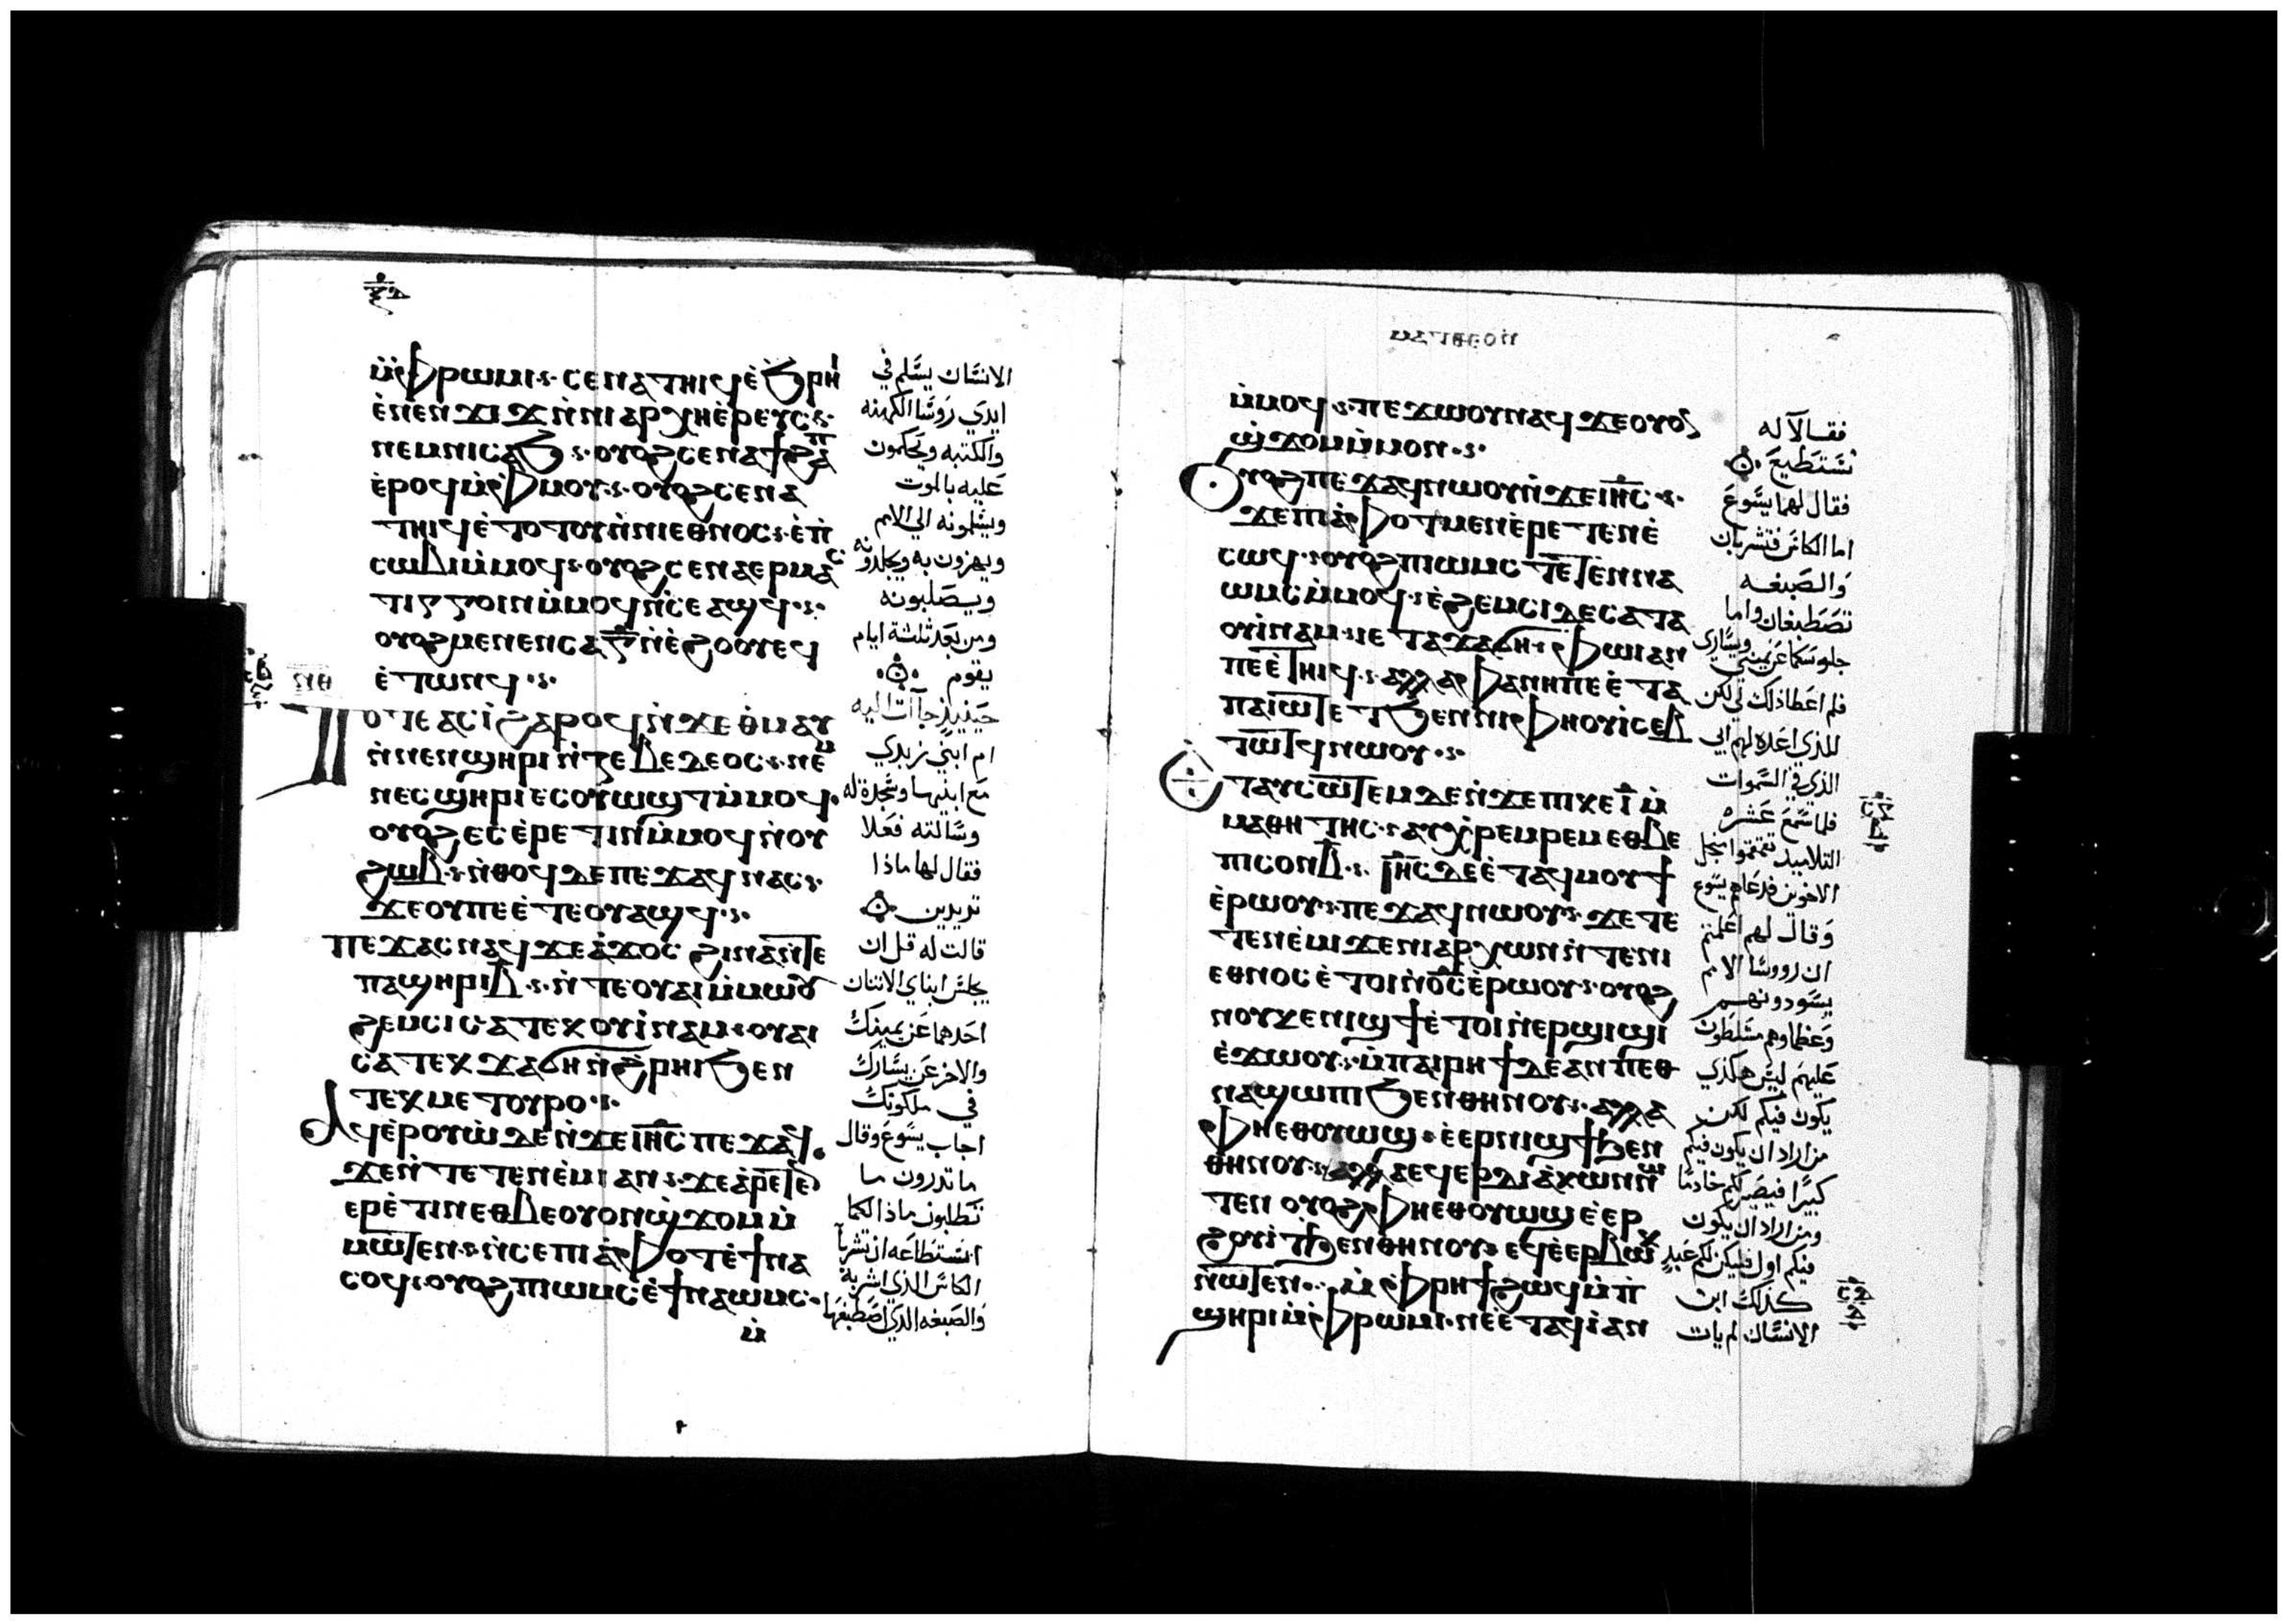 ⲙ̀ⲫⲣⲱⲙⲓ· ⲥⲉⲛⲁⲧⲏⲓϥ ⲉ̀ϧⲣⲏⲓ
ⲉ̀ⲛⲉⲛϫⲓϫ ⲛ̀ⲛⲓⲁⲣⲭⲏⲉ̀ⲣⲉⲩⲥ·
ⲛⲉⲙⲛⲓⲥⲁϧ· ⲟⲩⲟϩ ⲥⲉⲛⲁϯϩⲁⲡ
ⲉ̀ⲣⲟϥ ⲙ̀ⲫⲙⲟⲩ· ⲟⲩⲟϩ ⲥⲉⲛⲁ
ⲧⲏⲓϥ ⲉ̀ⲧⲟⲧⲟⲩ ⲛ̀ⲛⲓⲉⲑⲛⲟⲥ· ⲉ̀ⲡ̀
ⲥⲱⲃⲓ ⲙ̀ⲙⲟϥ· ⲟⲩⲟϩ ⲥⲉⲛⲁⲉⲣⲙⲁⲥ
ⲧⲓⲅⲅⲟⲓⲛ ⲙ̀ⲙⲟϥ ⲛ̀ⲥⲉⲁϣϥ·
ⲟⲩⲟϩ ⲙⲉⲛⲉⲛⲥⲁ ⲅ̅ ⲛ̀ⲉ̀ϩⲟⲟⲩ ⲉϥ
ⲉ̀ⲧⲱⲛϥ·
ⲟⲧⲉ ⲁⲥⲓ̀ ϩⲁⲣⲟϥ ⲛ̀ϫⲉ ⲑⲙⲁⲩ
ⲛ̀ⲛⲉⲛϣⲏⲣⲓ ⲛ̀ⲍⲉⲃⲉⲇⲉⲟⲥ· ⲛⲉⲙ
ⲛⲉⲥϣⲏⲣⲓ ⲉⲥⲟⲩⲱϣⲧ ⲙ̀ⲙⲟϥ·
ⲟⲩⲟϩ ⲉⲥⲉ̀ⲣⲉⲧⲓⲛ ⲙ̀ⲙⲟϥ ⲛ̀ⲟⲩ
ϩⲱⲃ· ⲛ̀ⲑⲟϥ ⲇⲉ ⲡⲉϫⲁϥ ⲛⲁⲥ·
ϫⲉ ⲟⲩ ⲡⲉ ⲉ̀ⲧⲉⲟⲩⲁϣϥ·
ⲡⲉϫⲁⲥ ⲛⲁϥ ϫⲉ ⲁ̀ϫⲟⲥ ϩⲓⲛⲁ ⲛ̀ⲧⲉ
ⲡⲁϣⲏⲣⲓ ⲃ̅· ⲛ̀ⲧⲉ ⲟⲩⲁⲓ ⲙ̀ⲙⲱⲟⲩ
ϩⲉⲙⲥⲓ ⲥⲁⲧⲉⲕⲟⲩⲓ̀ⲛⲁⲙ· ⲟⲩⲁⲓ
ⲥⲁⲧⲉⲕϫⲁϭⲏ ⲛ̀ϩⲣⲏⲓ ϧⲉⲛ
ⲧⲉⲕⲙⲉⲧⲟⲩⲣⲟ·
ⲁϥⲉ̀ⲣⲟⲩⲱ̀ ⲇⲉ ⲛ̀ϫⲉ ⲓⲏ̅ⲥ ⲡⲉϫⲁϥ
ϫⲉ ⲛ̀ⲧⲉⲧⲉⲛⲉ̀ⲙⲓ ⲁⲛ· ϫⲉ ⲁ̀ⲣⲉⲧⲉⲛ
ⲉⲣⲉ̀ⲧⲓⲛ ⲉⲑⲃⲉ ⲟⲩ ⲟⲩⲟⲛϣ̀ϫⲟⲙ ⲙ̀
ⲙⲱⲧⲉⲛ· ⲛ̀ⲥⲉ ⲡⲓⲁ̀ⲫⲟⲧ ⲉ̀ϯⲛⲁ
ⲥⲟϥ· ⲟⲩⲟϩ ⲡⲓⲱⲙⲥ ⲉ̀ϯⲛⲁⲱⲙⲥ·
ⲙ̀
الانسان يسلم في
ايدي روسا الكهنه
والكتبه ويحكمون
عليه بالموت
ويسلمونه الى الامم
ويهزون به ويجلدونه
ويصلبونه
ومن بعد ثلثة ايام
يقوم
حينيذ جاآت اليه
ام ابني زبدي
مع ابنيها وسجدة له
وسالته فعلا
فقال لها ماذا
تريدين
قالت له قل ان
يجلس ابناي الاثنان
احدهما عن يمينك
والاخر عن يسارك
في ملكوتك
اجاب يسوع وقال
ما تدرون ما
تطلبون ماذا لكما
استطاعه ان تشربا
الكاس الذي اشربه
والصبغه الذي اصطبغها
ⲙ̀ⲙⲟϥ· ⲡⲉϫⲱⲟⲩ ⲛⲁϥ ϫⲉ ⲟⲩⲟⲛ
ϣ̀ϫⲟⲙ ⲙ̀ⲙⲟⲛ·
ⲟⲩⲟϩ ⲡⲉϫⲁϥ ⲛⲱⲟⲩ ⲛ̀ϫⲉ ⲓⲏ̅ⲥ·
ϫⲉ ⲡⲓⲁ̀ⲫⲟⲧ ⲙⲉⲛ ⲉ̀ⲣⲉⲧⲉⲛⲉ̀
ⲥⲱϥ· ⲟⲩⲟϩ ⲡⲓⲱⲙⲥ ⲧⲉⲧⲉⲛⲛⲁ
ⲱⲙⲥ ⲙ̀ⲙⲟϥ· ⲉ̀ϩⲉⲙⲥⲓ ⲇⲉ ⲥⲁⲧⲁ
ⲟⲩⲓ̀ⲛⲁⲙ· ⲛⲉ ⲧⲁϫⲁϭⲏ· ⲫⲱⲓ ⲁⲛ
ⲡⲉ ⲉ̀ⲧⲏⲓϥ· ⲁⲗⲗⲁ ⲫⲁⲛⲏ ⲡⲉ ⲉ̀ⲧⲁ
ⲡⲁⲓⲱⲧ ⲉⲧϧⲉⲛ ⲛⲓⲫⲏⲟⲩⲓ̀ ⲥⲉⲃ
ⲧⲱⲧϥ ⲛⲱⲟⲩ·
ⲉⲧⲁⲩⲥⲱⲧⲉⲙ ⲇⲉ ⲛ̀ϫⲉ ⲡⲓⲕⲉ ⲓ̅ ⲙ̀
ⲙⲁⲑⲏⲧⲏⲥ· ⲁⲩⲭ̀ⲣⲉⲙⲣⲉⲙ ⲉⲑⲃⲉ
ⲡⲓⲥⲟⲛ ⲃ̅· ⲓⲏ̅ⲥ ⲇⲉ ⲉ̀ⲧⲁϥⲙⲟⲩϯ
ⲉ̀ⲣⲱⲟⲩ· ⲡⲉϫⲁϥ ⲛⲱⲟⲩ· ϫⲉ ⲧⲉ
ⲧⲉⲛⲉ̀ⲙⲓ ϫⲉ ⲛⲓⲁⲣⲭⲱⲛ ⲛ̀ⲧⲉ ⲛⲓ
ⲉⲑⲛⲟⲥ ⲉ̀ⲧⲟⲓ ⲛ̀ⲟ̅ⲥ ⲉ̀ⲣⲱⲟⲩ· ⲟⲩⲟϩ
ⲛⲟⲩⲕⲉⲛⲓϣϯ ⲉ̀ⲧⲟⲓ ⲛ̀ⲉⲣϣⲓϣⲓ
ⲉ̀ϫⲱⲟⲩ· ⲙ̀ⲡⲁⲓⲣⲏϯ ⲇⲉ ⲁⲛ ⲡⲉⲑ
ⲛⲁϣⲱⲡⲓ ϧⲉⲛ ⲑⲏⲛⲟⲩ· ⲁⲗⲗⲁ
ⲫⲏ ⲉⲑⲟⲩⲱϣ ⲉ̀ⲉⲣⲛⲓϣϯ ϧⲉⲛ
ⲑⲏⲛⲟⲩ· ⲉϥⲉⲣⲇⲓⲁ̀ⲕⲱⲛ ⲛⲱ
ⲧⲉⲛ ⲟⲩⲟϩ ⲫⲏ ⲉⲑⲟⲩⲱϣ ⲉ̀ⲉⲣ
ϩⲟⲩⲓ̀ⲧ ϧⲉⲛ ⲑⲏⲛⲟⲩ ⲉϥⲉ̀ⲉⲣⲃⲱⲕ
ⲛⲱⲧⲉⲛ· ⲙ̀ⲫⲣⲏϯ ϩⲱϥ ⲙ̀ⲡ̀
ϣⲏⲣⲓ ⲙ̀ⲫⲣⲱⲙⲓ· ⲛⲉ ⲉ̀ⲧⲁϥⲓ̀ ⲁⲛ
فقالا له
نستطيع
فقال لهما يسوع
اما الكاس فتشربان
والصبغه
تصطبغان واما
جلوسكما عن يميني ويساري
فلم اعطا ذلك لي لكن
للذي اعده لهم ابي
الذي في السموات
فلما سمع عشره
التلاميد تقمقموا بجل
الاخوين فدعاهم يسوع
وقال لهم اعلمتم
ان رووسا الامم
يسودونهم
وعظماوهم مسلطون
عليهم ليس هكذي
يكون فيكم لكن
من اراد ان يكون فيكم
كبيرا فيصير لكم خادما
ومن اراد ان يكون
فيكم اول فليكن لكم عبد
كذلك ابن
الانسان لم يات